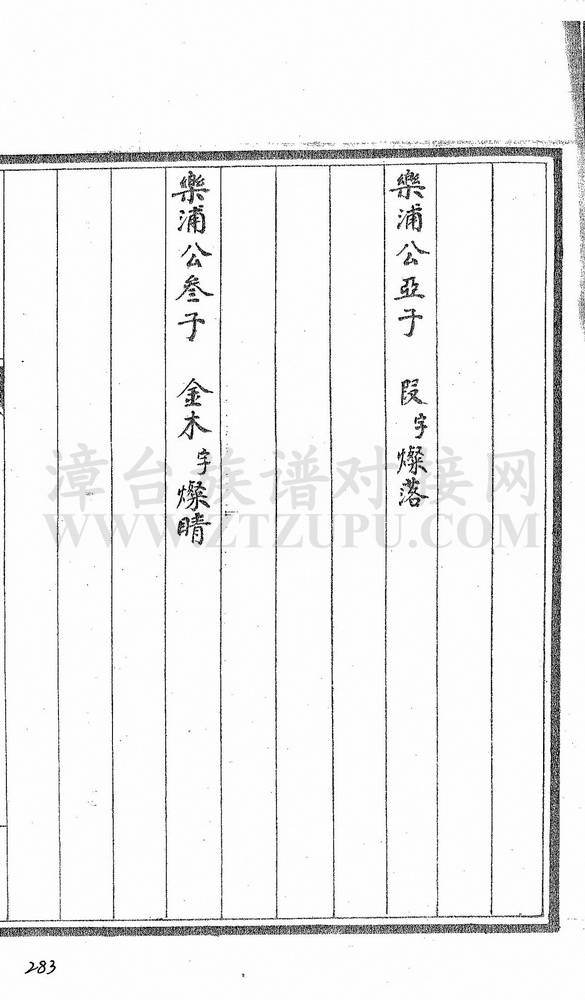 樂浦公亞子 段字燦落
樂浦公叁子 金木字燦晴
漳台族谱对接网
WWW.ZTZUPU.COM
283